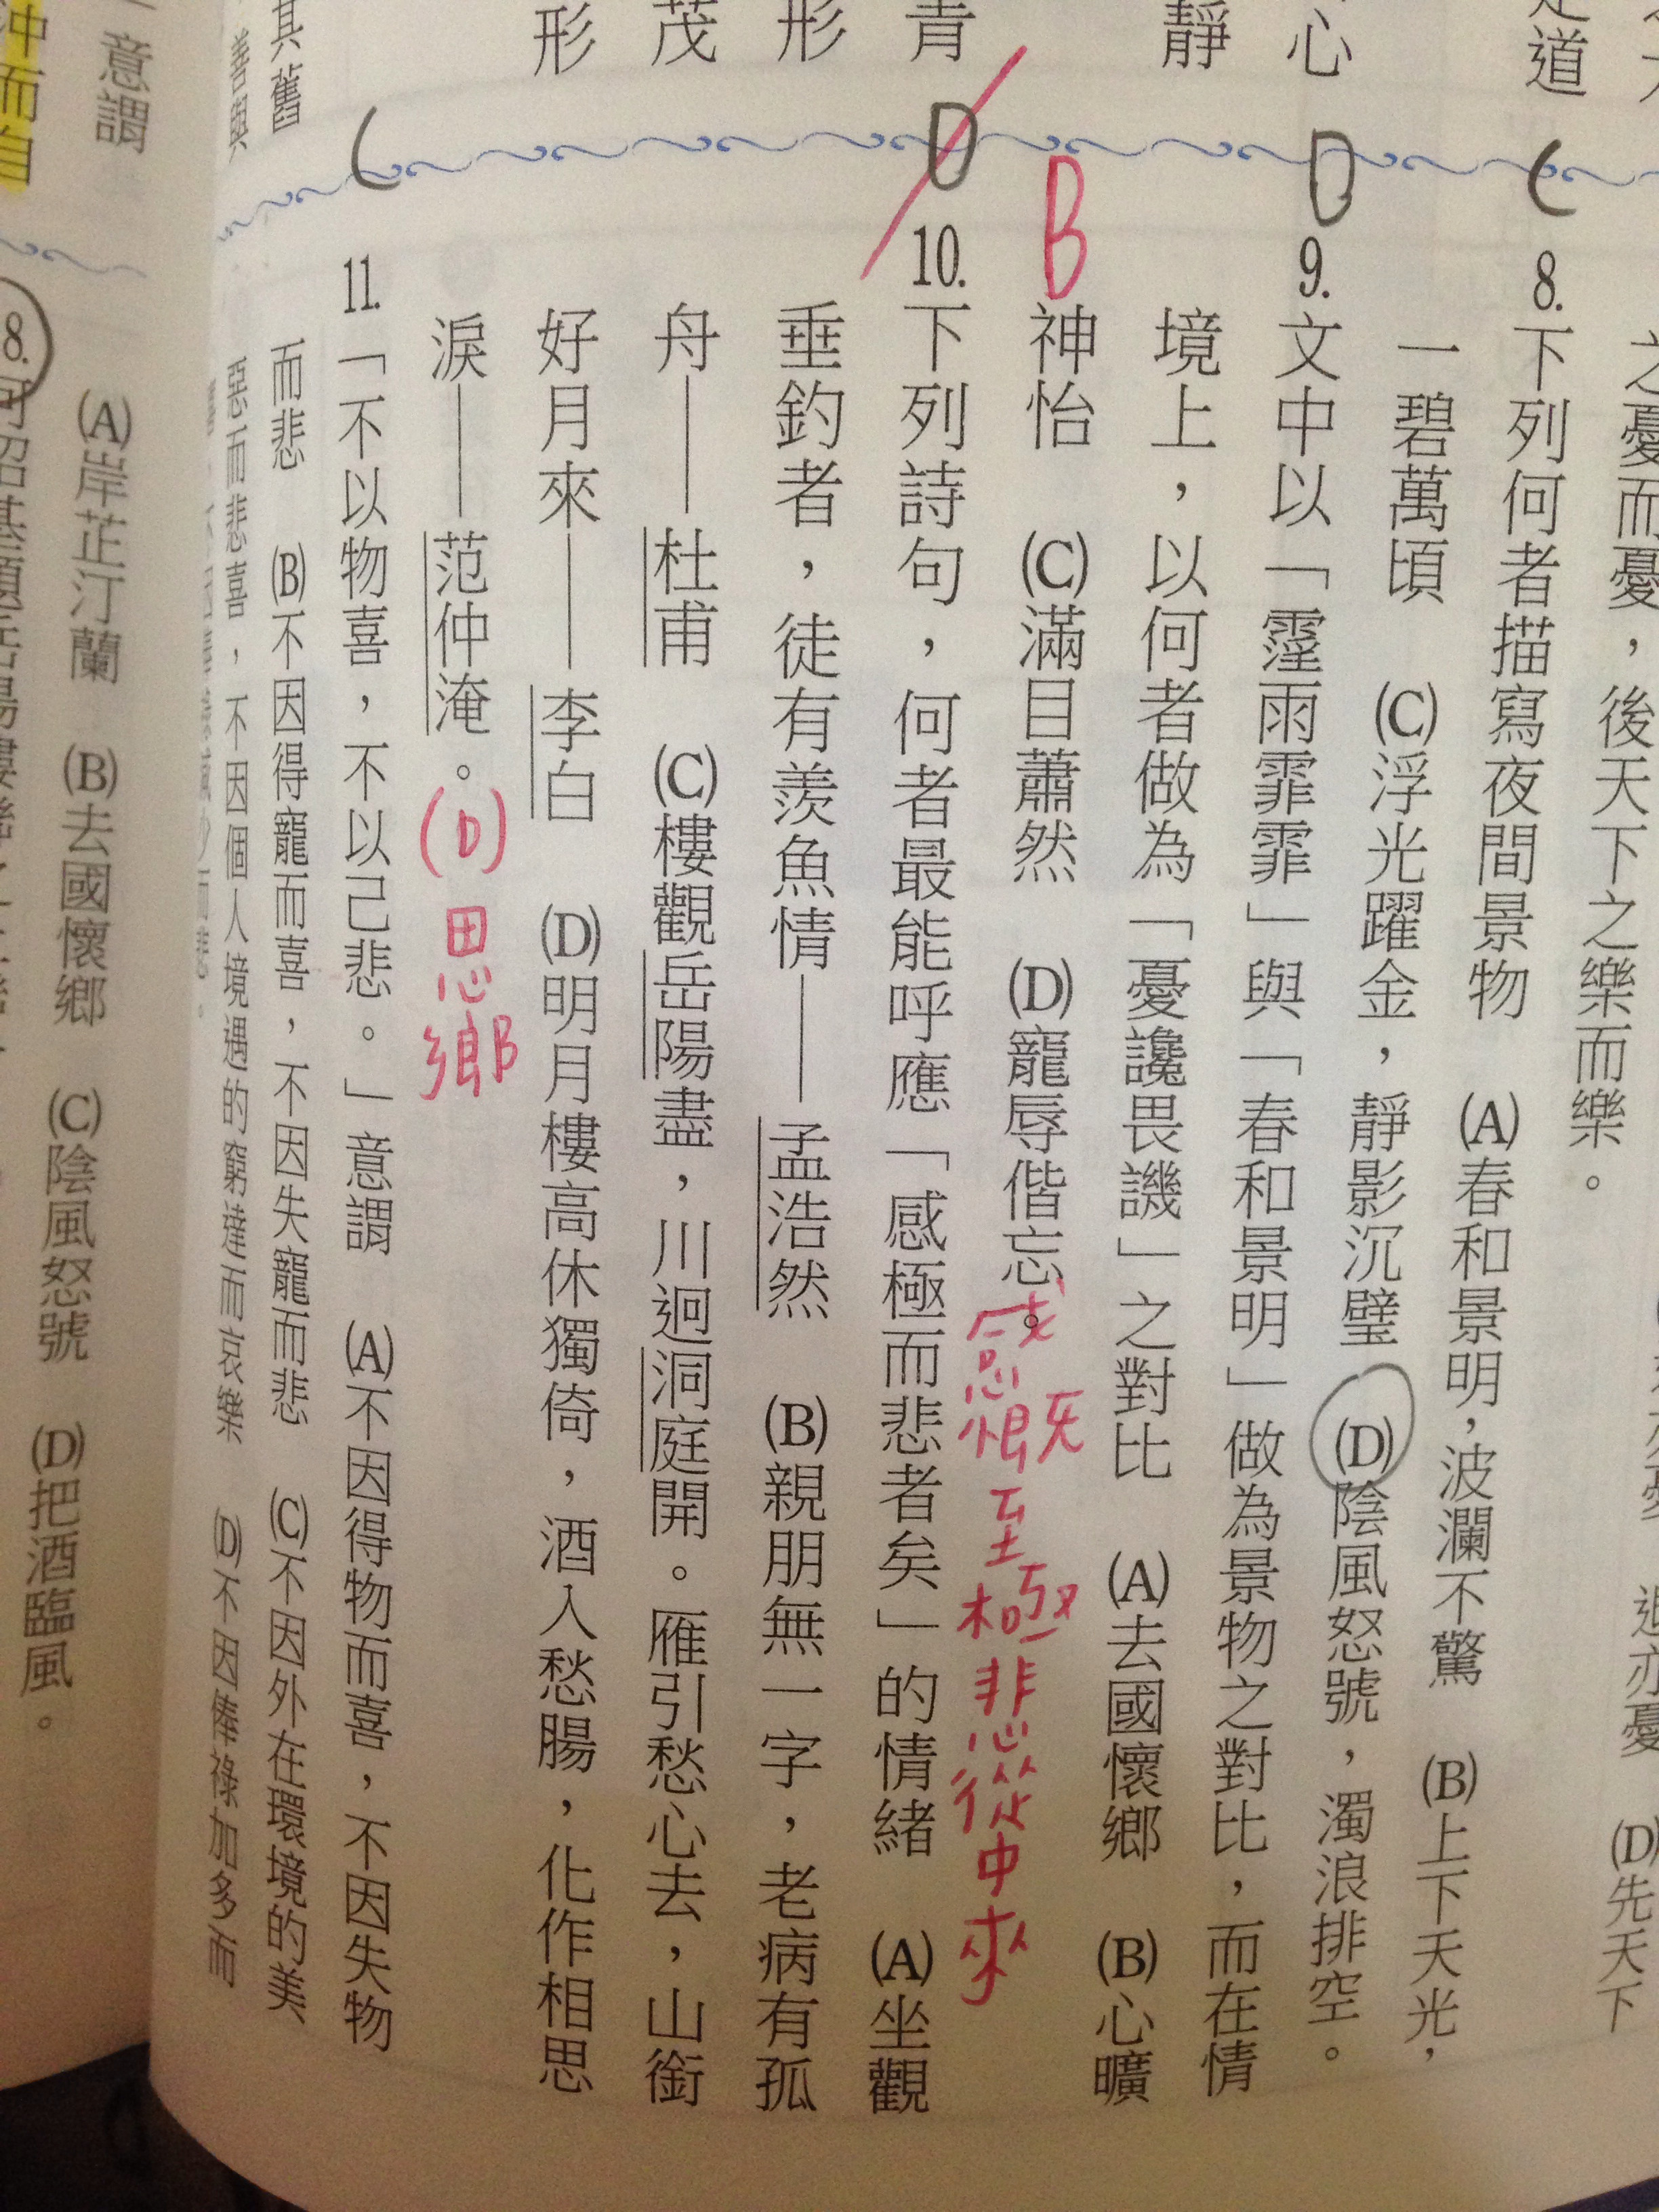 之憂而憂，後天下之樂而樂。
(D)先天下
過亦憂
C 8.下列何者描寫夜間景物　(A)春和景明，波瀾不驚　(B)上下天光，
一碧萬頃　(C)浮光躍金，靜影沉璧　(D)陰風怒號，濁浪排空。
D 9.文中以「霪雨霏霏」與「春和景明」做為景物之對比，而在情
境上，以何者做為「憂讒畏譏」之對比　(A)去國懷鄉　(B)心曠
神怡　(C)滿目蕭然　(D)寵辱偕忘。
B
感慨至極悲從中來
D 10.下列詩句，何者最能呼應「感極而悲者矣」的情緒　(A)坐觀
垂釣者，徒有羨魚情——孟浩然　(B)親朋無一字，老病有孤
舟——杜甫　(C)樓觀岳陽盡，川迥洞庭開。雁引愁心去，山銜
好月來——李白　(D)明月樓高休獨倚，酒入愁腸，化作相思
淚——范仲淹。
(D)思鄉
C 11.「不以物喜，不以己悲。」意謂　(A)不因得物而喜，不因失物
而悲　(B)不因得寵而喜，不因失寵而悲　(C)不因外在環境的美
惡而悲喜，不因個人境遇的窮達而哀樂　(D)不因俸祿加多而
道
心
靜
青
形
茂
形
其舊
善與
意謂
(A)岸芷汀蘭　(B)去國懷鄉　(C)陰風怒號　(D)把酒臨風。
沖而自
8.